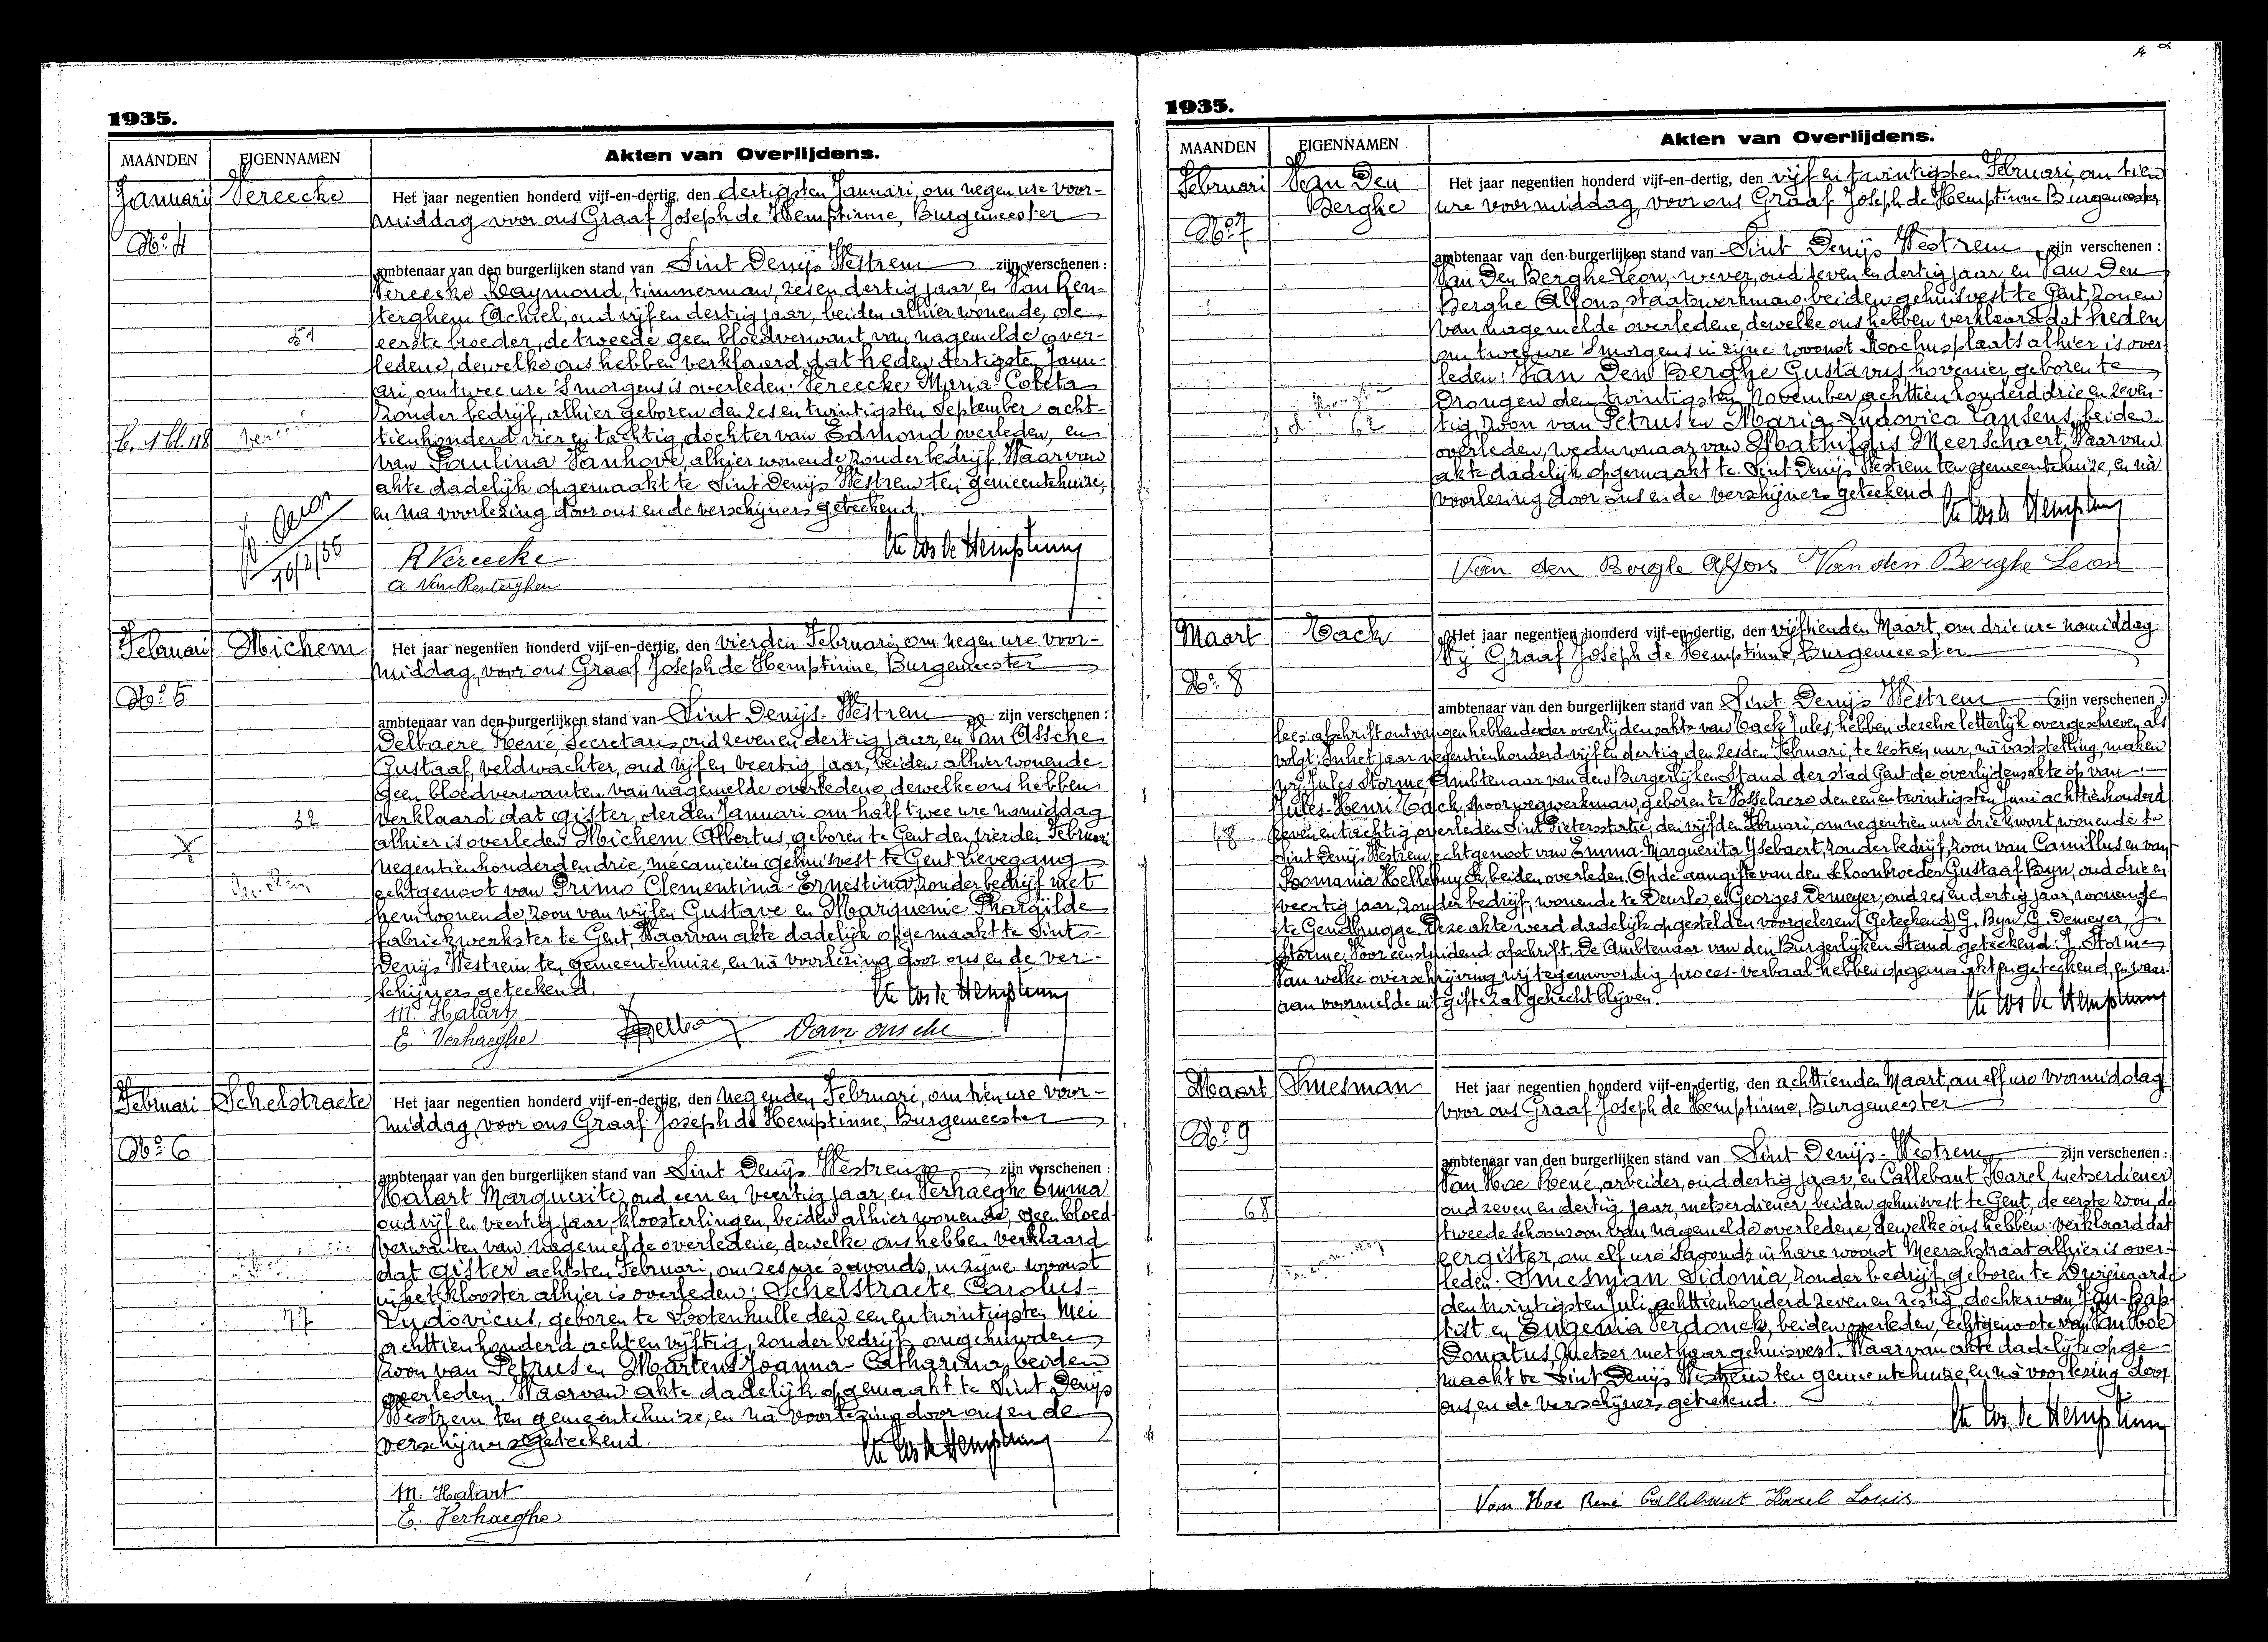 1935.
MAANDEN EIGENNAMEN Akten van Overlijdens.
Januari Vereecke Het jaar negentien honderd vijf-en-dertig, den dertigsten Januari, om negen ure voor-
middag voor ons Graaf Joseph de Hemptinne, Burgemeester
No. 4
ambtenaar van den burgerlijken stand van Sint Denijs Westrem zijn verschenen:
Vereecke Raymond, timmerman, zes en dertig jaar, en Van Ren-
terghem Achiel, oud vijf en dertig jaar, beiden alhier wonende, de
51 eerste broeder, de tweede geen bloedverwant van nagemelde over-
ledene, dewelke ons hebben verklaard dat heden dertigsten Janu-
ari, om twee ure 's morgens is overleden: Vereecke Maria Coleta
zonder bedrijf, alhier geboren den zes en twintigsten September acht-
tienhonderd vier en tachtig, dochter van Edmond overleden, en
van Paulina Vanhove, alhier wonende zonder bedrijf. Waarvan
akte dadelijk opgemaakt te Sint Denijs Westrem ten gemeentehuize,
en na voorlezing door ons en de verschijners geteekend.
R Vereecke
A Van Renterghem
Februari Michem Het jaar negentien honderd vijf-en-dertig, den vierden Februari, om negen ure voor-
middag, voor ons Graaf Joseph de Hemptinne, Burgemeester
No. 5
ambtenaar van den burgerlijken stand van Sint Denijs-Westrem zijn verschenen:
Delbaere René, Secretaris, oud zeven en dertig jaar, en Van Assche
Gustaaf, veldwachter, oud vijf en veertig jaar, beiden alhier wonende
geen bloedverwanten van nagemelde overledene, dewelke ons hebben
32 verklaard dat gister, derden Januari om half twee ure namiddag
X alhier is overleden Michem Albertus, geboren te Gent den vierden Februari
negentienhonderd en drie, mécanicien gehuisvest te Gent Lievegang
echtgenoot van Primo Clementina-Ernestina, zonder bedrijf met
hem wonende, zoon van wijlen Gustave en Marquenie Pharaïlde
fabriekwerkster te Gent, Waarvan akte dadelijk opgemaakt te Sint-
Denijs Westrem ten gemeentehuize, en na voorlezing door ons, en de ver-
schijners geteekend.
M. Halart
E. Verhaeghe
Februari Schelstraete Het jaar negentien honderd vijf-en-dertig, den negenden Februari, om tien ure voor-
middag, voor ons Graaf Joseph de Hemptinne, Burgemeester
No. 6
ambtenaar van den burgerlijken stand van Sint Denijs Westrem zijn verschenen:
Halart Marguerite, oud een en veertig jaar, en Verhaeghe Emma
oud vijf en veertig jaar, kloosterlingen, beiden alhier wonende, geen bloed-
verwanten van nagemelde overledene, dewelke ons hebben verklaard
dat gister achtsten Februari, om zes ure 's avonds, in zijne woonst
in het klooster alhier is overleden: Schelstraete Carolus-
77 Ludovicus, geboren te Lootenhulle den een en twintigsten Mei
achttienhonderd acht en vijftig, zonder bedrijf, ongehuwden
zoon van Petrus en Martens Joanna-Catharina, beiden
overleden. Waarvan akte dadelijk opgemaakt te Sint Denijs
Westrem ten gemeentehuize, en na voorlezing door ons en de
verschijners geteekend.
M. Halart
E. Verhaeghe
1935.
MAANDEN EIGENNAMEN Akten van Overlijdens.
Februari Van Den Het jaar negentien honderd vijf-en-dertig, den vijf en twintigsten Februari, om tien
Berghe ure voormiddag, voor ons Graaf Joseph de Hemptinne Burgemeester
No. 7
ambtenaar van den burgerlijken stand van Sint Denijs Westrem zijn verschenen:
Van Den Berghe Leon, wever, oud zeven en dertig jaar, en Van Den
Berghe Alfons, staatswerkman, beiden gehuisvest te Gent, zonen
van nagemelde overledene, dewelke ons hebben verklaard dat heden
om twee ure 's morgens in zijne woonst Rochusplaats alhier is over-
leden: Van Den Berghe Gustavus hovenier, geboren te
Drongen den twintigsten November achttien honderd drie en zeven-
62 tig, zoon van Petrus en Maria Ludovica Lansens, beiden
overleden, weduwnaar van Mathildis Meerschaert, Waarvan
akte dadelijk opgemaakt te Sint Denijs Westrem ten gemeentehuize, en na
voorlezing door ons en de verschijners geteekend
Van den Berghe Alfons Van den Berghe Leon
Maart Tack Het jaar negentien honderd vijf-en-dertig, den vijftienden Maart, om drie ure namiddag
Wij Graaf Joseph de Hemptinne, Burgemeester
No. 8
ambtenaar van den burgerlijken stand van Sint Denijs Westrem zijn verschenen:
afschrift ontvangen hebbende der overlijdensakte van Tack Jules, hebben dezelve letterlijk overgeschreven als
volgt: In het jaar negentienhonderd vijf en dertig den zesden Februari, te zestien uur, na vaststelling, maken
wij Jules Storme, Ambtenaar van den Burgerlijken Stand der stad Gent de overlijdensakte op van:
Jules-Henri Tack, spoorwegwerkman, geboren te Vosselaere den een en twintigsten Juni achttienhonderd
48 zeven en tachtig, overleden Sint Pietersstatie, den vijfden Februari, om negentien uur drie kwart, wonende te
Sint Denijs Westrem, echtgenoot van Emma Marguerita Ysebaert, zonder bedrijf, zoon van Camillus en van
Romania Hellebuyck, beiden overleden. Op de aangifte van den schoonbroeder Gustaaf Byn, oud drie en
veertig jaar, zonder bedrijf, wonende te Deurle, en Georges Demeyer, oud zes en dertig jaar, wonende
te Gendbrugge. Deze akte werd dadelijk opgesteld en voorgelezen (Geteekend) G. Byn, G. Demeyer, J.
Storme, Voor eensluidend afschrift. De Ambtenaar van den Burgerlijken Stand geteekend: J. Storme
Van welke overschrijving wij tegenwoordig proces-verbaal hebben opgemaakt en geteekend, en waar-
aan voormelde uitgifte zal gehecht blijven.
Maart Smesman Het jaar negentien honderd vijf-en-dertig, den achttienden Maart, om elf ure voormiddag
voor ons Graaf Joseph de Hemptinne, Burgemeester
No. 9
ambtenaar van den burgerlijken stand van Sint Denijs-Westrem zijn verschenen:
Van Hoe René, arbeider, oud dertig jaar, en Callebaut Karel, metserdiener
68 oud zeven en dertig jaar, metserdiener, beiden gehuisvest te Gent, de eerste zoon, de
tweede schoonzoon van nagemelde overledene, dewelke ons hebben verklaard dat
eergister, om elf ure 's avonds in hare woonst Meerschstraat alhier is over-
leden: Smesman Sidonia, zonder bedrijf geboren te Zwijnaarde
den twintigsten Juli achttienhonderd zeven en zestig, dochter van Jan-Bap-
tist en Eugenia Verdonck, beiden overleden, echtgenoote van Van Hoe
Donatus, Metser met haar gehuisvest. Waarvan akte dadelijk opge-
maakt te Sint Denijs Westrem ten gemeentehuize, en na voorlezing door
ons, en de verschijners geteekend.
Van Hoe René Callebaut Karel Louis